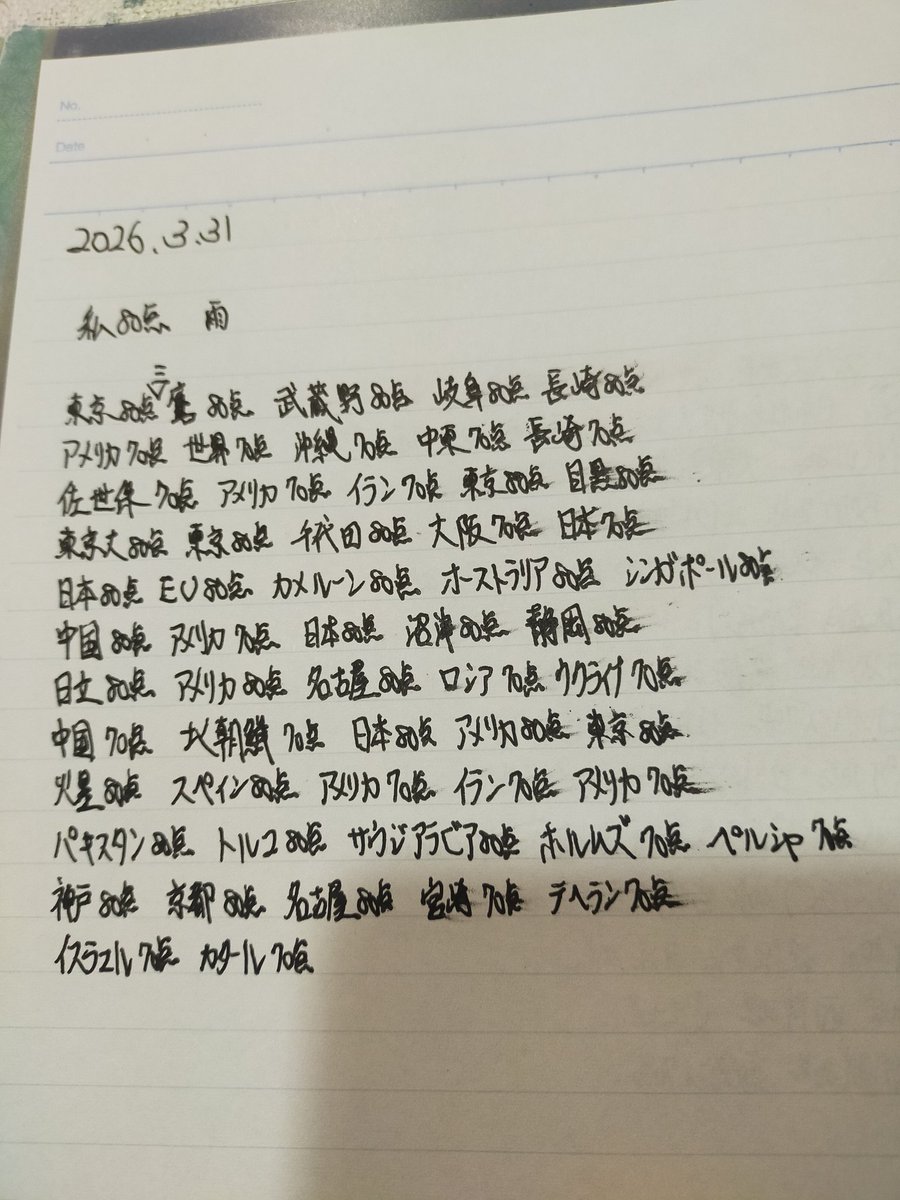 No.
Date
2026.3.31
私80点 雨
東京80点 三鷹80点 武蔵野80点 岐阜80点 長崎80点
アメリカ70点 世界70点 沖縄70点 中東70点 長崎70点
佐世保70点 アメリカ70点 イラン70点 東京80点 目黒80点
東京大80点 東京80点 千代田80点 大阪70点 日本70点
日本80点 EU80点 カメルーン80点 オーストラリア80点 シンガポール80点
中国80点 アメリカ70点 日本80点 沼津80点 静岡80点
日立80点 アメリカ80点 名古屋80点 ロシア70点 ウクライナ70点
中国70点 北朝鮮70点 日本80点 アメリカ80点 東京80点
火星80点 スペイン80点 アメリカ70点 イラン70点 アメリカ70点
パキスタン80点 トルコ80点 サウジアラビア80点 ホルムズ70点 ペルシャ70点
神戸80点 京都80点 名古屋80点 宮崎70点 テヘラン70点
イスラエル70点 カタール70点